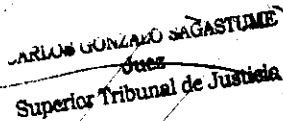 CARLOS GONZALO SAGASTUME
Juez
Superior Tribunal de Justicia